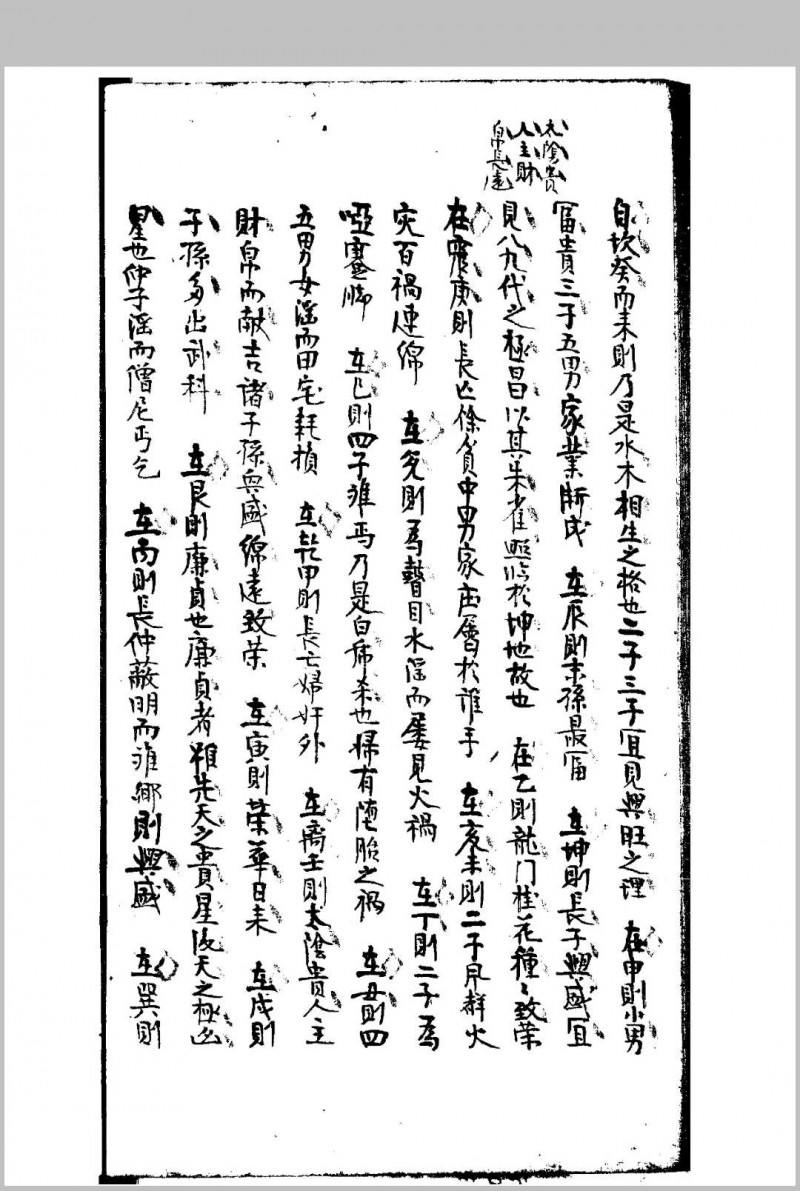 太陰貴
人主財
帛長遠
自坎癸而来則乃是水木相生之格也二子三子宜見興旺之理 在申則少男
冨貴三子五男家業漸成 在辰則末孫最冨 在坤則長子興盛宜
見八九代之極昌以其朱雀照臨於坤地故也 在乙則龍门桂花種〻致荣
在震庚則長亡餘貧中男家庄屬於誰手 在亥未則二子早群火
灾百禍連綿 在兌則爲瞽目水淫而屡見火禍 在丁則二子爲
啞蹇脚 在巳則四子难焉乃是白乕杀也婦有堕胎之禍 在丑則四
五男女淫而田宅耗損 在乾甲則長亡婦奸外 在离壬則太陰貴人主
財帛而敵吉諸子孫興盛綿遠致荣 在寅則荣華日来 在戌則
子孫多出武科 在艮則廉貞也廉貞者雖先天之貴星後天之極凶
星也仲子淫而僧尼丐乞 在丙則長仲蔽明而难鄉則興盛 在巽則